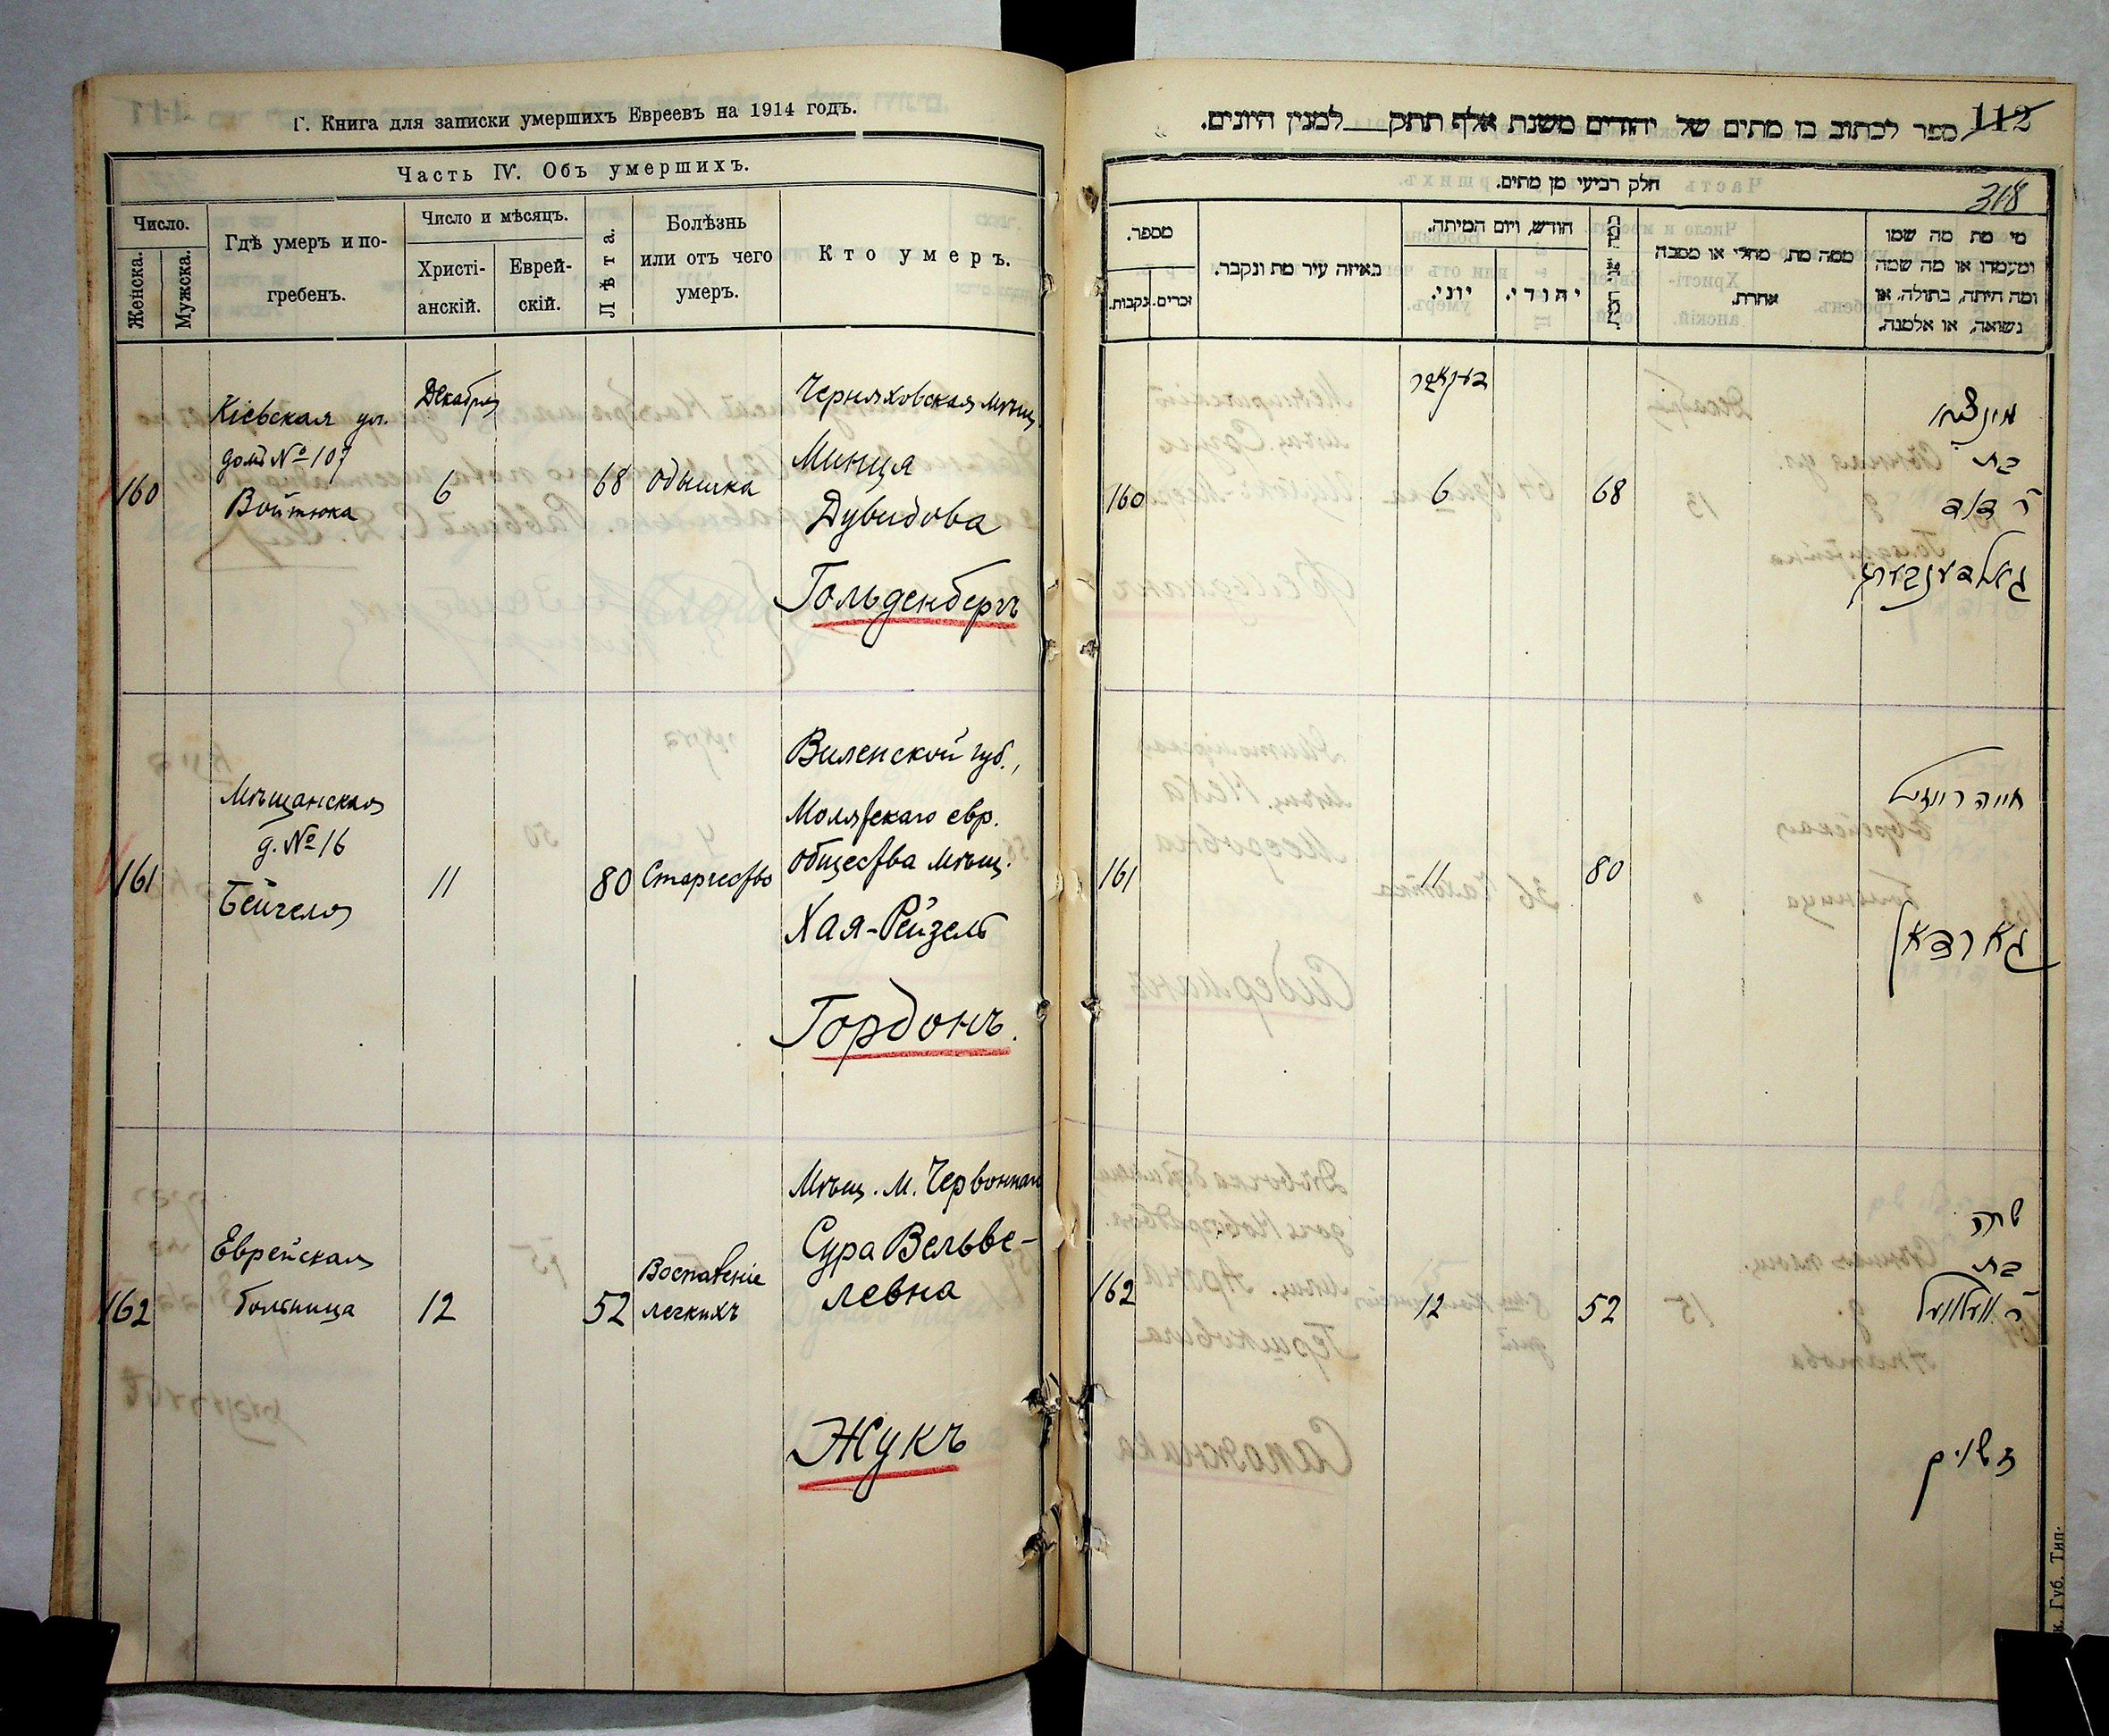 Г. Книга для записки умершихъ Евреевъ на 1914 годъ.
Часть IV. Объ умершихъ.
Число.
Женска.
Мужска.
Гдѣ умеръ и по-
гребенъ.
Число и мѣсяцъ.
Христі-
анскій.
Еврей-
скій.
Лѣта.
Болѣзнь
или отъ чего
умеръ.
Кто умеръ.
160
Кіевская ул.
домъ № 107
Войтюка
Декабря
6
68
Одышка
Черняховская мѣщ.
Минця
Дувидова
Гольденбергъ
161
Мѣщанская
д. № 16
Бейгеля
11
80
Старчество
Виленской губ.,
евр.
общества мѣщ.
Хая-Рейзель
Гордонъ.
162
Еврейская
больница
12
52
Воспаленіе
легкихъ
Мѣщ. м. Червонная
Сура Вельве-
левна
Жукъ
112
ספר לכתוב בו מתים של יהודים משנת אלף תתק למנין היונים.
318
חלק רביעי מן מתים.
מספר.
נקבות.
זכרים.
באיזה עיר מת ונקבר.
חודש, ויום המיתה.
יוני.
יהודי.
ממה מת, מחלי או מסבה
אחרת.
מי מת מה שמו
ומעמדו או מה שמה
ומה היתה, בתולה, או
נשואה, או אלמנה.
160
דעקאבר
6
68
מינציא
בת
ר' דוד
גאלדענבערג
161
11
80
חיה רייזיל
גארדאן
162
12
52
שרה
בת
ר' וועלוויל
זשוק
к. Губ. Тип.